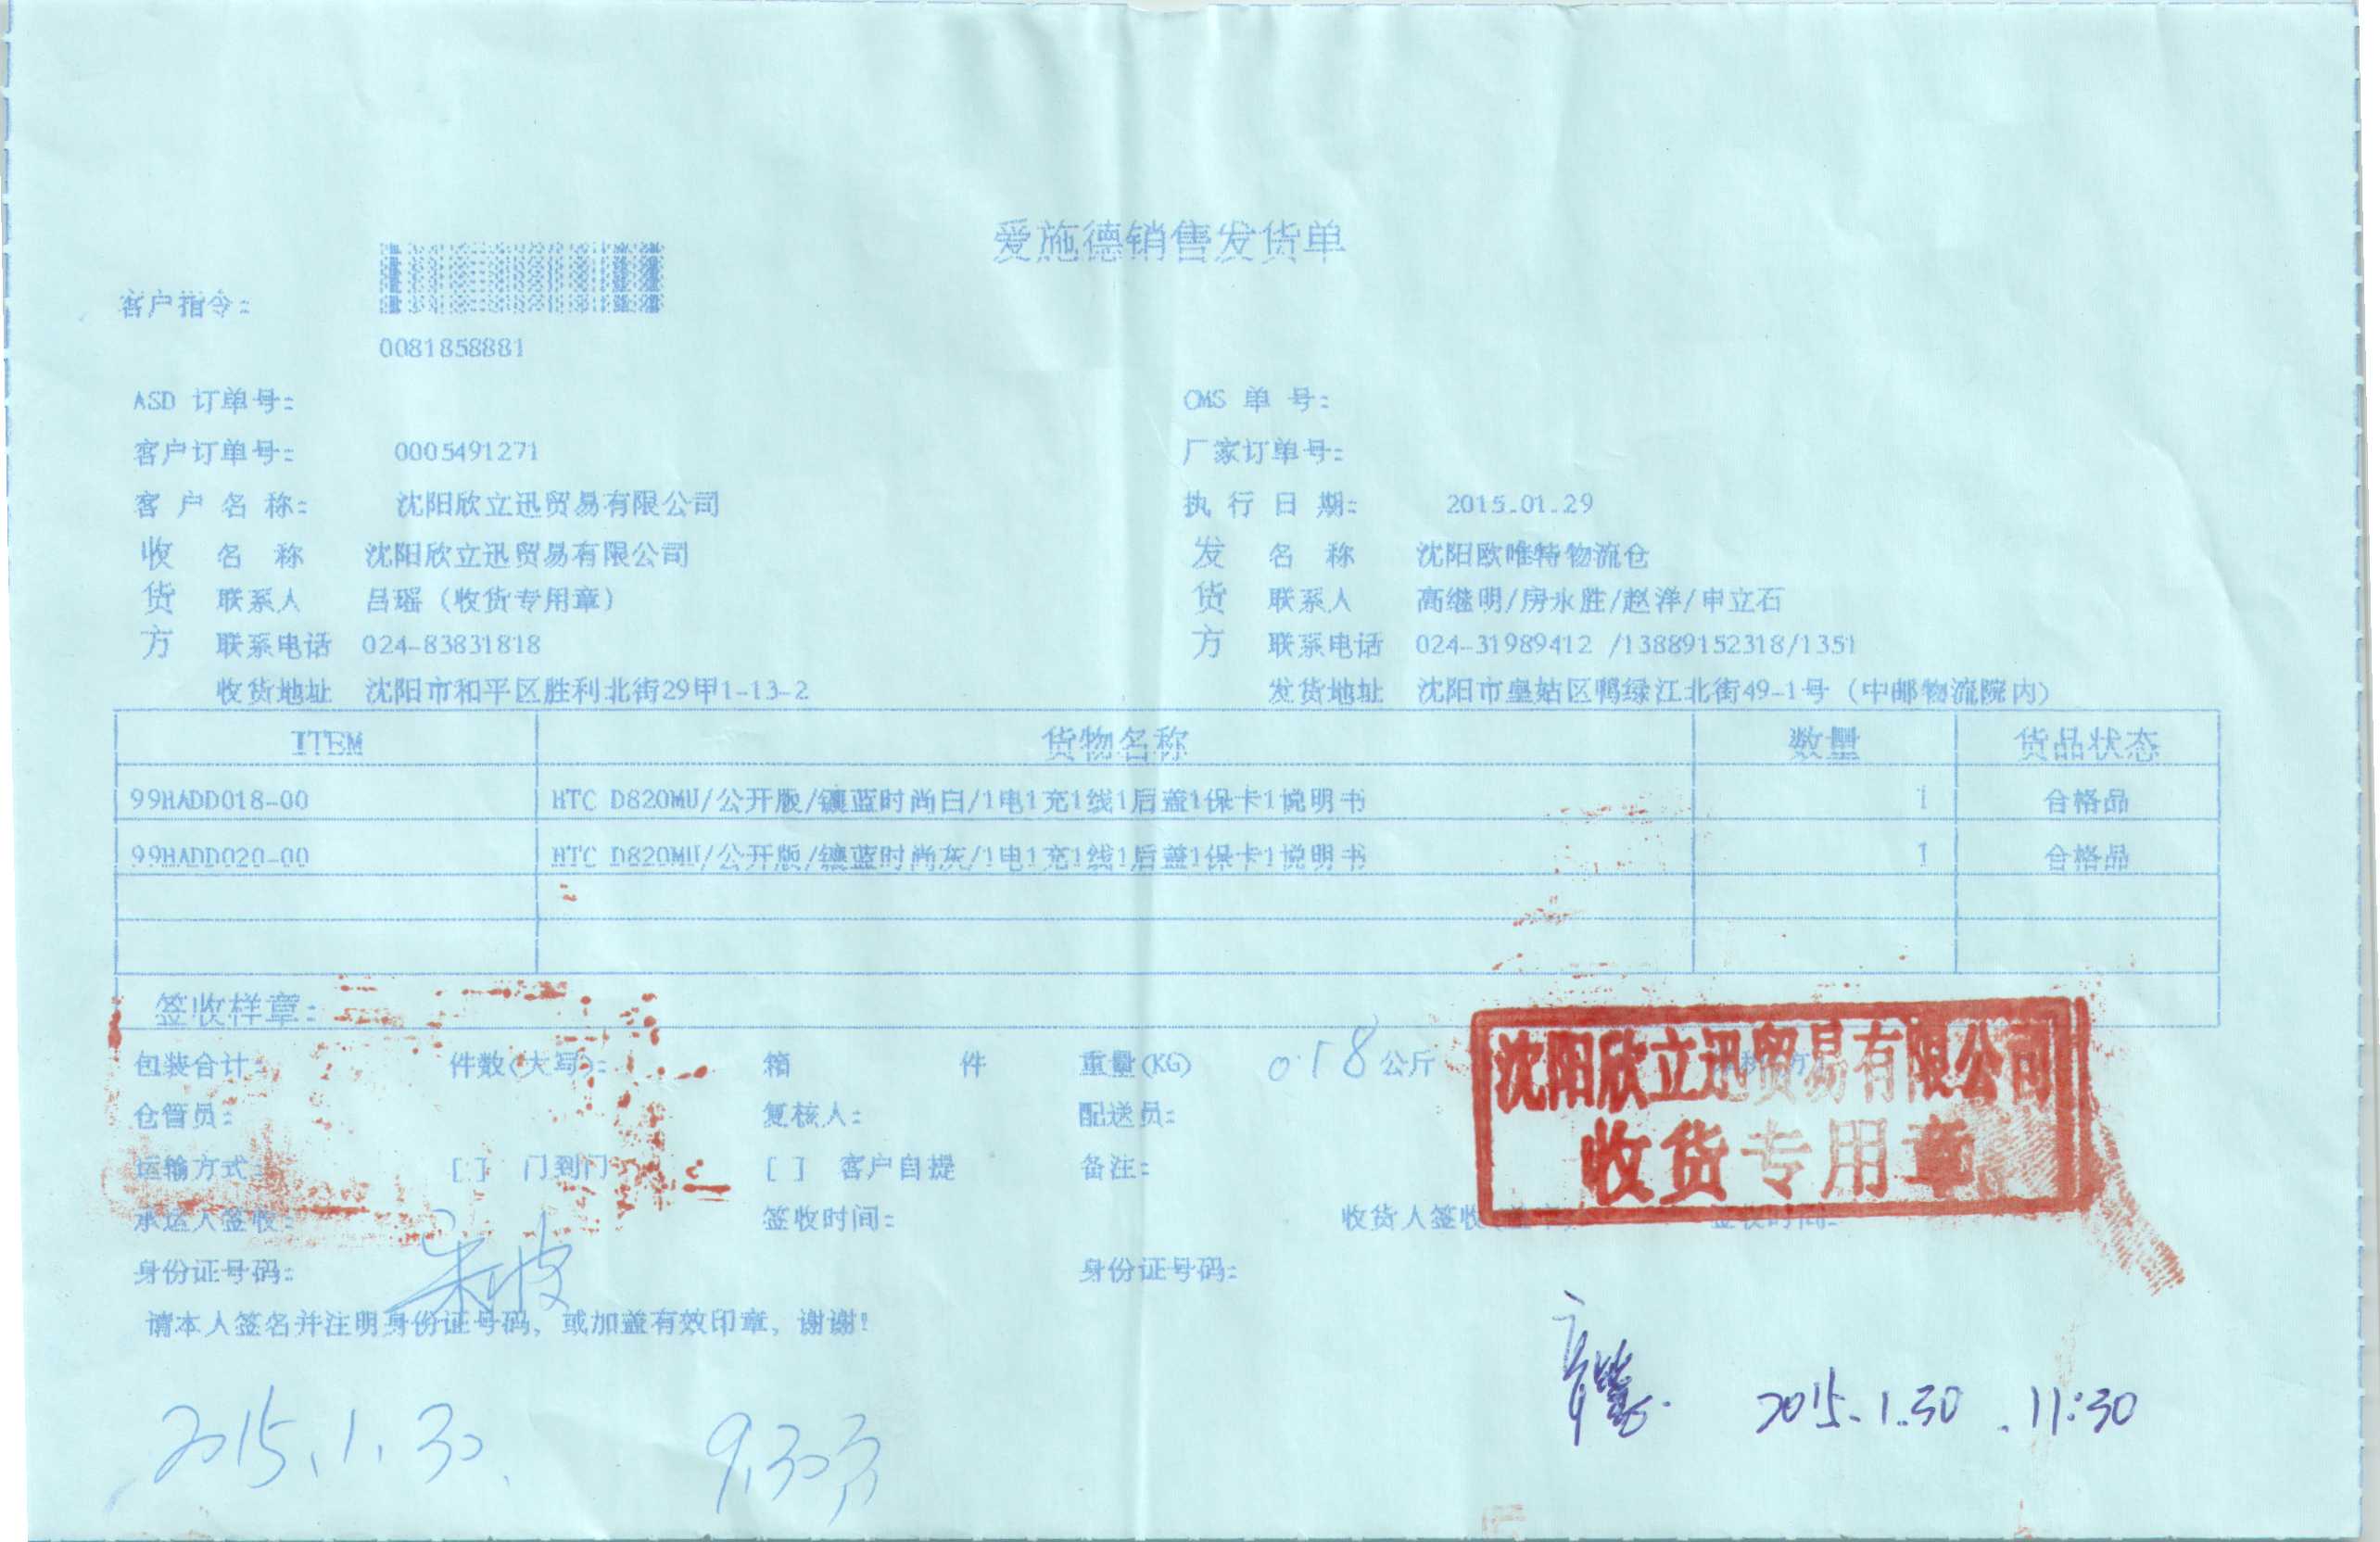 爱施德销售发货单
客户指令:
0081858881
ASD 订单号: CMS 单 号:
客户订单号: 0005491271 厂家订单号:
客 户 名 称: 沈阳欣立迅贸易有限公司 执 行 日 期: 2015.01.29
收 名 称 沈阳欣立迅贸易有限公司 发 名 称 沈阳欧唯特物流仓
货 联系人 吕瑶(收货专用章) 货 联系人 高继明/房永胜/赵洋/申立石
方 联系电话 024-83831818 方 联系电话 024-31989412 /13889152318/1351
收货地址 沈阳市和平区胜利北街29甲1-13-2 发货地址 沈阳市皇姑区鸭绿江北街49-1号(中邮物流院内)
ITEM 货物名称 数量 货品状态
99HADD018-00 HTC D820MU/公开版/镶蓝时尚白/1电1充1线1后盖1保卡1说明书 1 合格品
99HADD020-00 HTC D820MU/公开版/镶蓝时尚灰/1电1充1线1后盖1保卡1说明书 1 合格品
签收样章:
包装合计: 件数(大写): 箱 件 重量(KG) 0.18 公斤
沈阳欣立迅贸易有限公司
收货专用章
仓管员: 复核人: 配送员:
运输方式: [ ] 门到门 [ ] 客户自提 备注:
承运人签收: 签收时间: 收货人签收 签收时间:
身份证号码: 身份证号码:
请本人签名并注明身份证号码, 或加盖有效印章, 谢谢!
2015.1.30. 9:30
2015.1.30 . 11:30